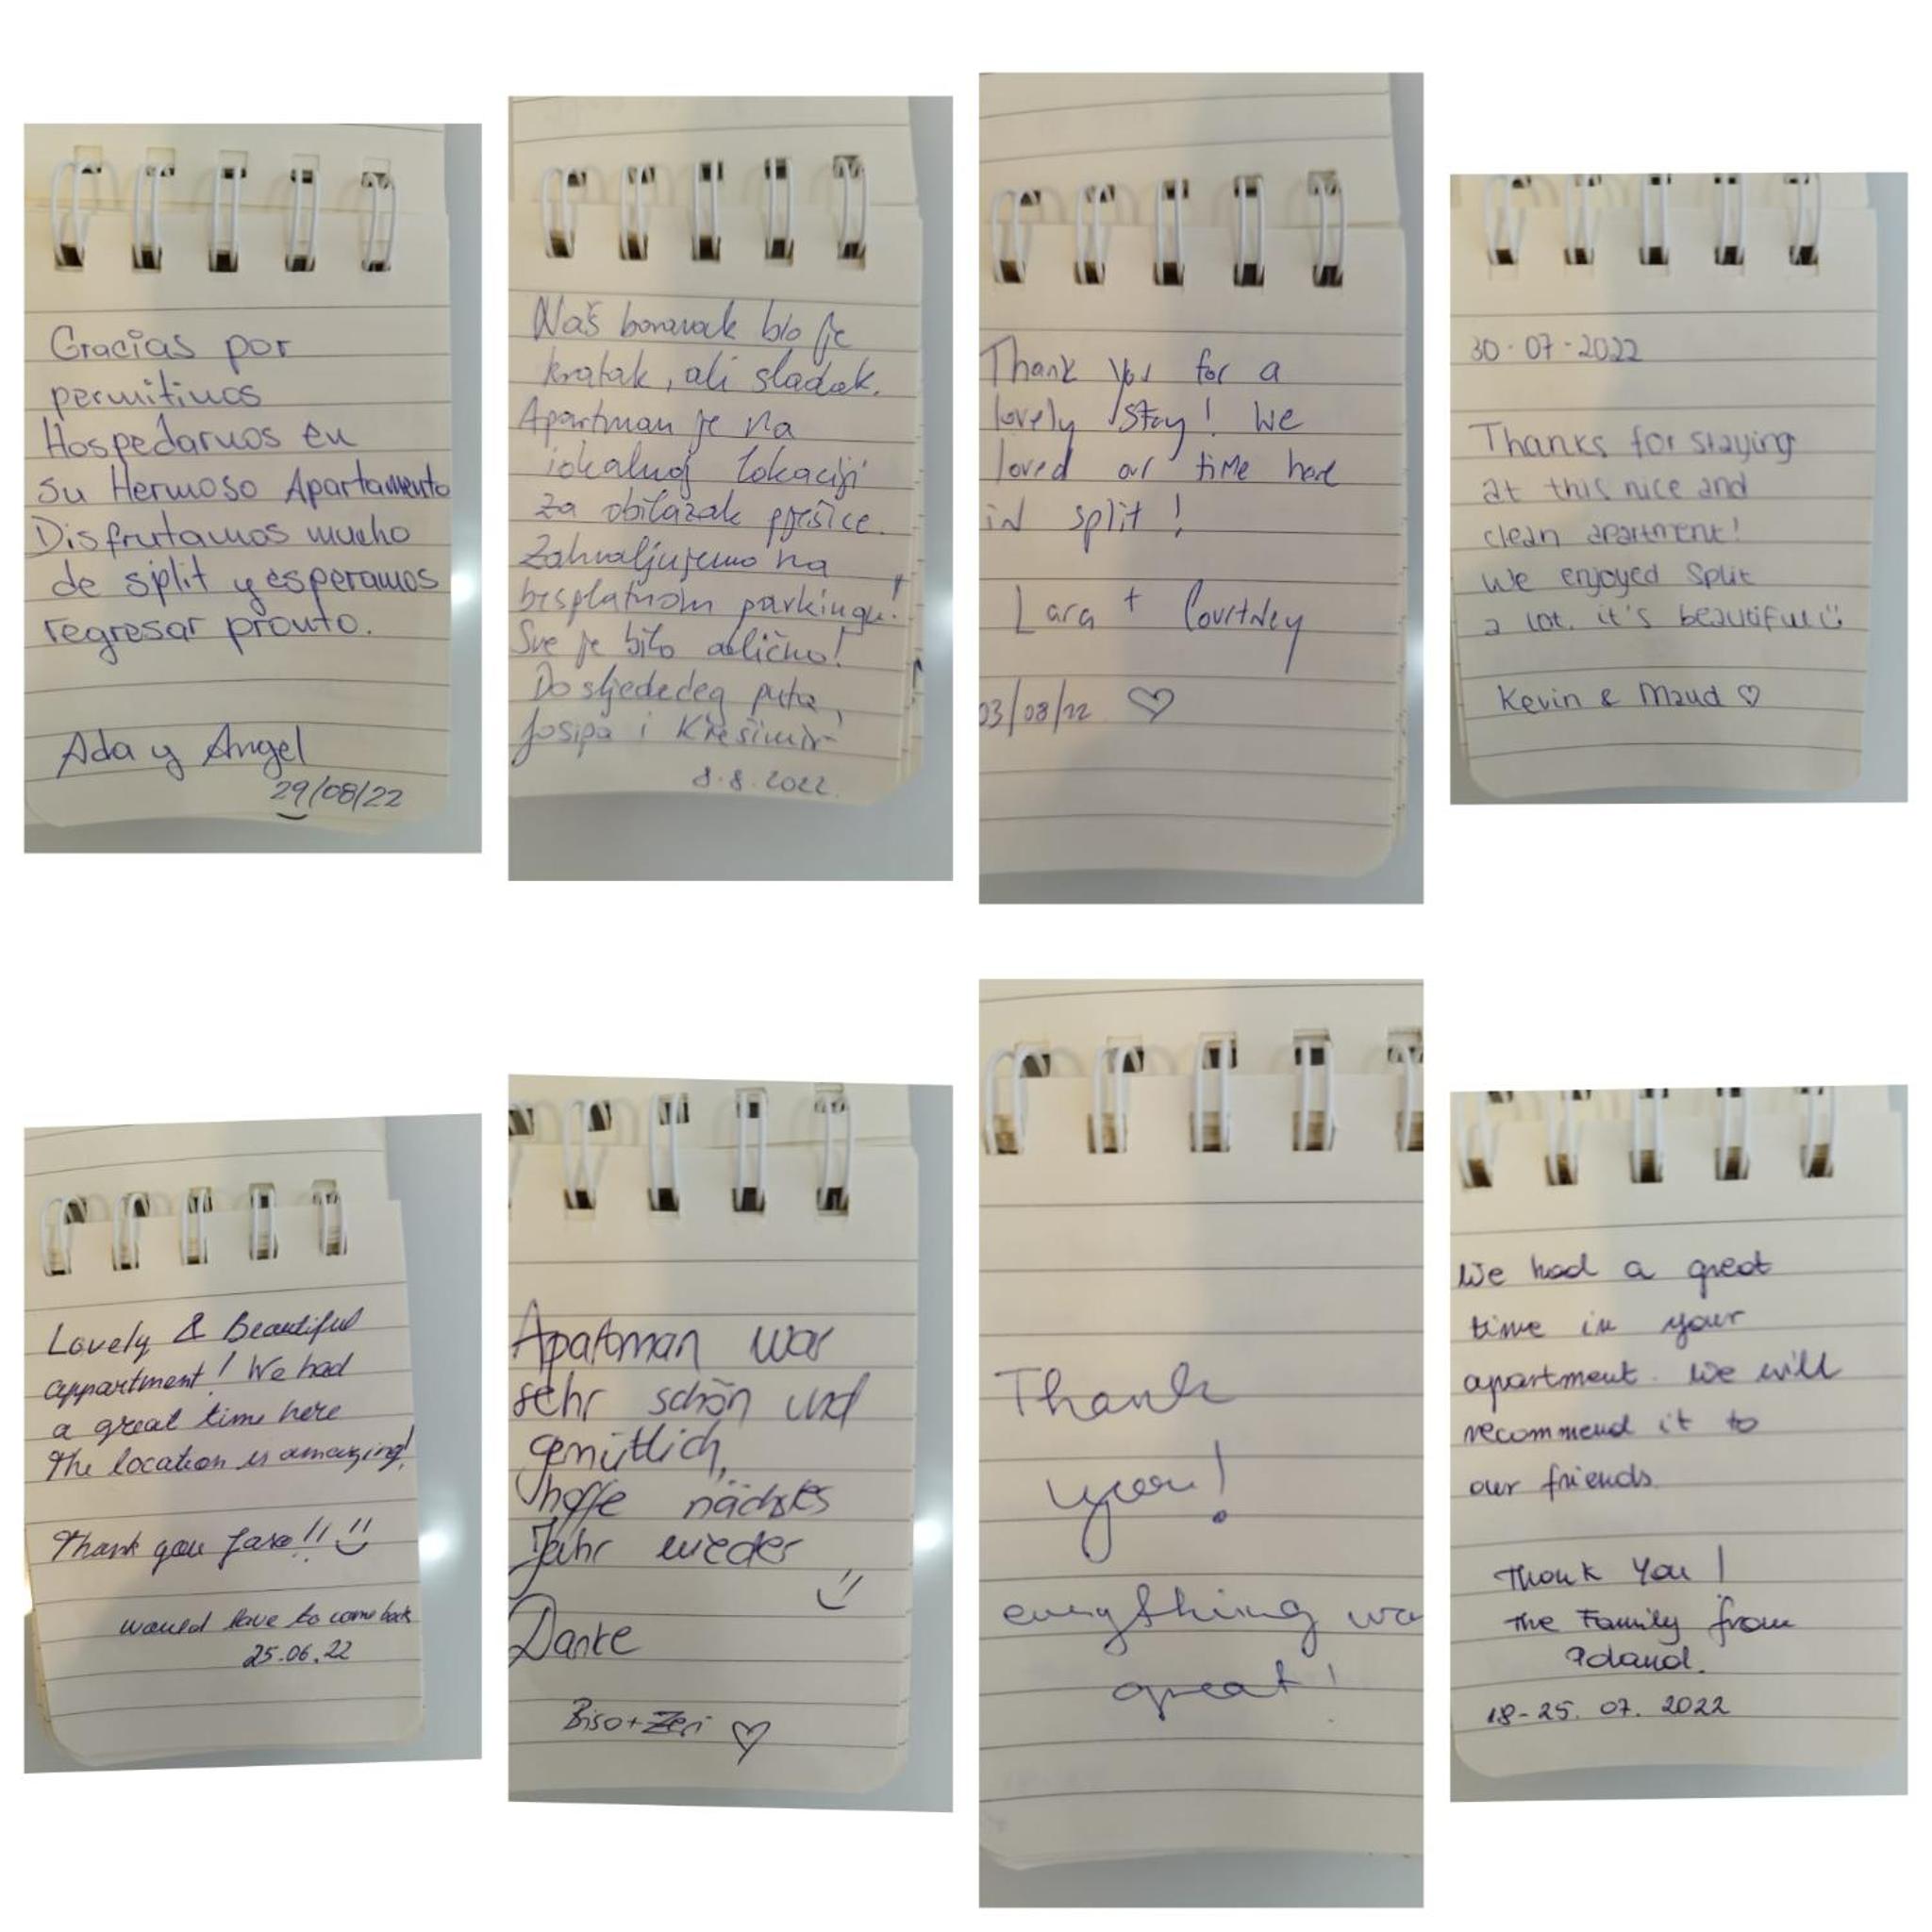 Gracias por
permitirnos
Hospedarnos en
su Hermoso Apartamento
Disfrutamos mucho
de split y esperamos
regresar pronto.
Ada y Angel
29/08/22
Naš boravak bio je
kratak, ali sladak.
Apartman je na
idealnoj lokaciji
za obilazak pješice.
Zahvaljujemo na
besplatnom parkingu!
Sve je bilo odlično!
Do sljedećeg puta,
Josipa i Krešimir
8.8.2022.
Thank you for a
lovely stay! We
loved our time here
in split!
Lara + Courtney
03/08/22 ♡
30-07-2022
Thanks for staying
at this nice and
clean apartment!
We enjoyed Split
a lot. it's beautiful
Kevin & Maud ♡
Lovely & Beautiful
appartment! We had
a great time here
The location is amazing!
Thank you !!
would love to come back
25.06.22
Apartman war
sehr schön und
gemütlich,
hoffe nächstes
Jahr wieder
Danke
Biso + Zeri ♡
Thank
you!
everything wa
great!
We had a great
time in your
apartment. We will
recommend it to
our friends.
Thank You!
The Family from
Poland.
18-25. 07. 2022